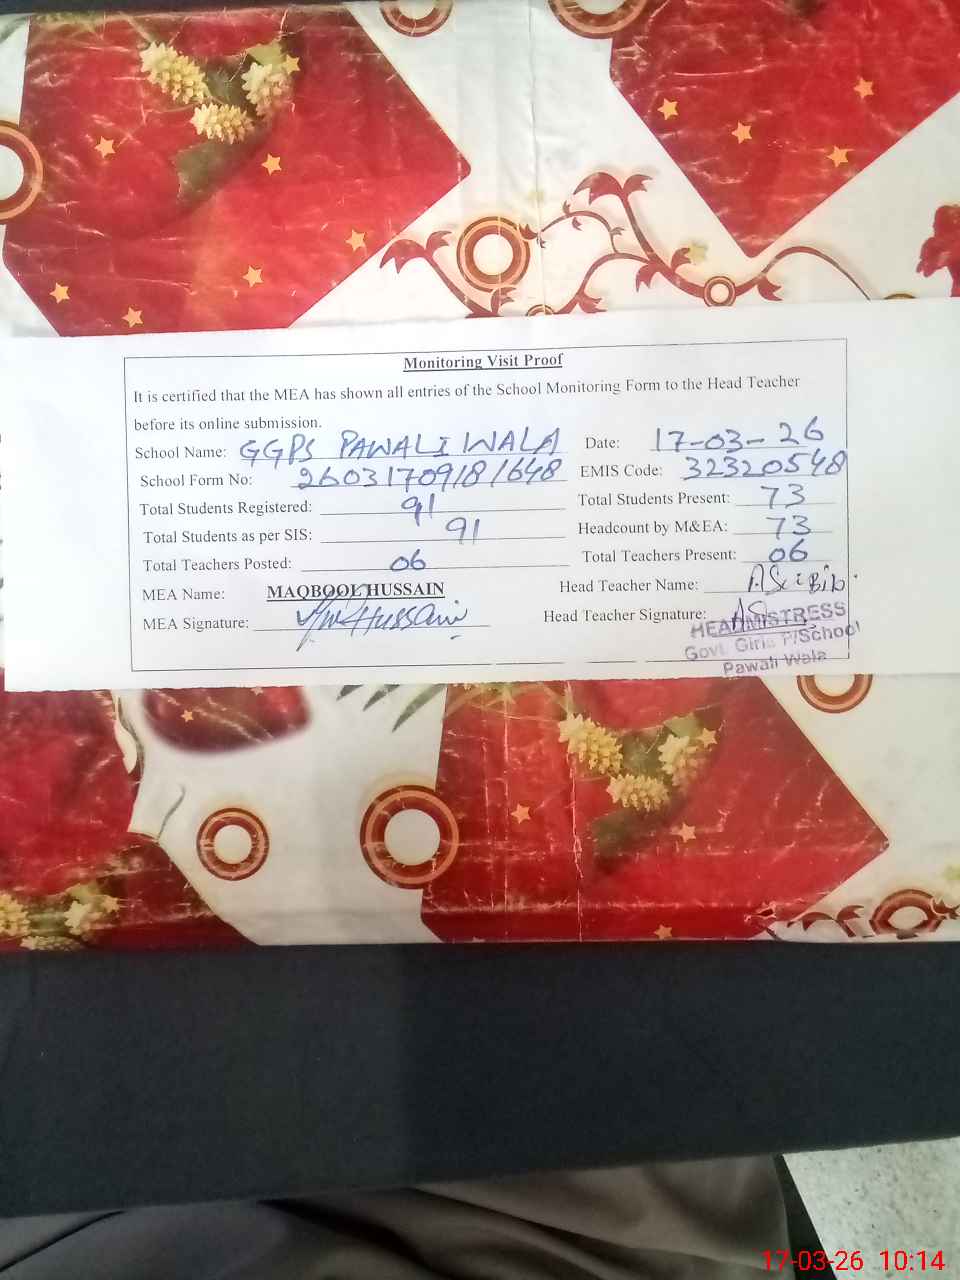 Monitoring Visit Proof
It is certified that the MEA has shown all entries of the School Monitoring Form to the Head Teacher
before its online submission.
School Name: GGPS PAWALI WALA Date: 17-03-26
School Form No: 26031709181648 EMIS Code: 32320548
Total Students Registered: 91 Total Students Present: 73
Total Students as per SIS: 91 Headcount by M&EA: 73
Total Teachers Posted: 06 Total Teachers Present: 06
MEA Name: MAQBOOL HUSSAIN Head Teacher Name: Bibi
MEA Signature: Hussain Head Teacher Signature:
HEADMISTRESS
Govt. Girls P/School
Pawali Wala
17-03-26 10:14